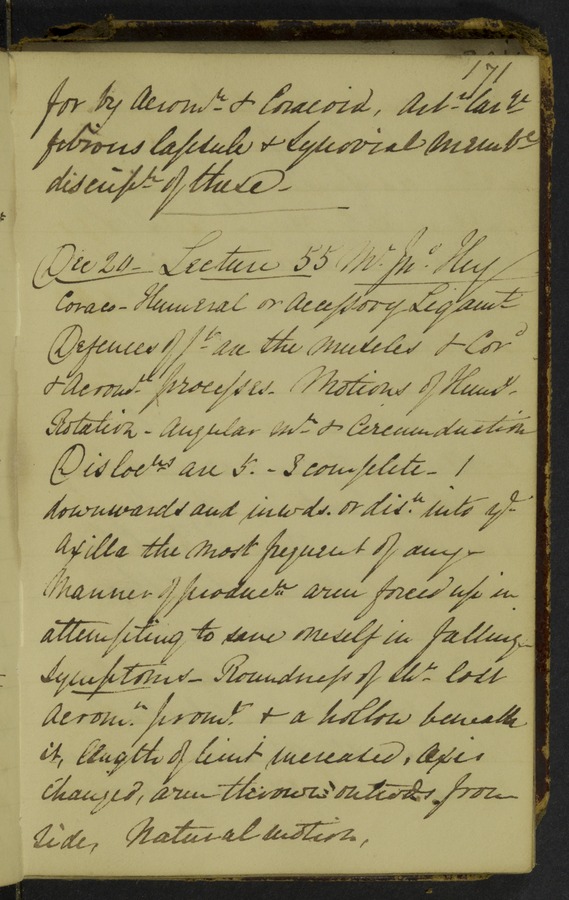 171
for by Acromn & Coracoid, Artr Carge
fibrous Capsule & Synovial Membe
discripn of these –
Dec 20 – Lecture 55 Mr Jno Hey
Coraco-Humeral or Accessory Ligamt
Defences of Jt are the muscles & Cord
& Acromn processes – Motions of Hums –
Rotation – Angular mn & Circumduction
Dislocns are 5. – 3 complete – 1
downwards and inwds. or disn into ye
axilla the most frequent of any –
Manner of producn arm forced up in
attempting to save oneself in falling –
Symptoms – Roundness of shr lost
Acromn promt & a hollow beneath
it, length of limb increased, Axis
changed, arm thrown outwds from
side, Natural motion,